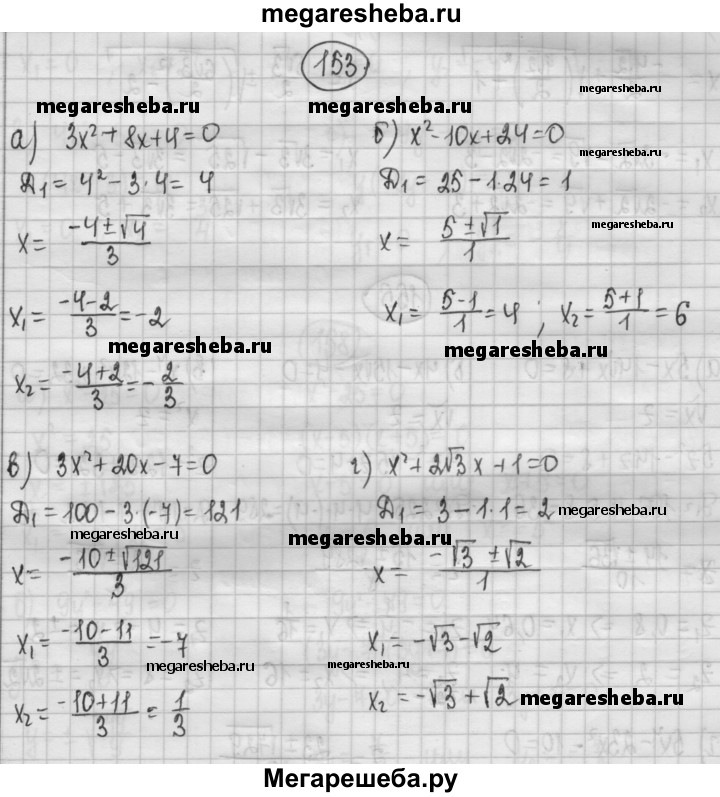 megaresheba.ru
153
megaresheba.ru
megaresheba.ru
megaresheba.ru
а) 3x² + 8x + 4 = 0
Д₁ = 4² - 3·4 = 4
x = (-4 ± √4)/3
x₁ = (-4-2)/3 = -2
megaresheba.ru
x₂ = (-4+2)/3 = -2/3
б) x² - 10x + 24 = 0
megaresheba.ru
Д₁ = 25 - 1·24 = 1
x = (5 ± √1)/1
megaresheba.ru
x₁ = (5-1)/1 = 4 ; x₂ = (5+1)/1 = 6
megaresheba.ru
в) 3x² + 20x - 7 = 0
Д₁ = 100 - 3·(-7) = 121
megaresheba.ru
x = (-10 ± √121)/3
x₁ = (-10-11)/3 = -7
megaresheba.ru
x₂ = (-10+11)/3 = 1/3
г) x² + 2√3 x + 1 = 0
Д₁ = 3 - 1·1 = 2
megaresheba.ru
megaresheba.ru
x = (-√3 ± √2)/1
x₁ = -√3 - √2
megaresheba.ru
megaresheba.ru
x₂ = -√3 + √2
megaresheba.ru
Мегарешеба.ру